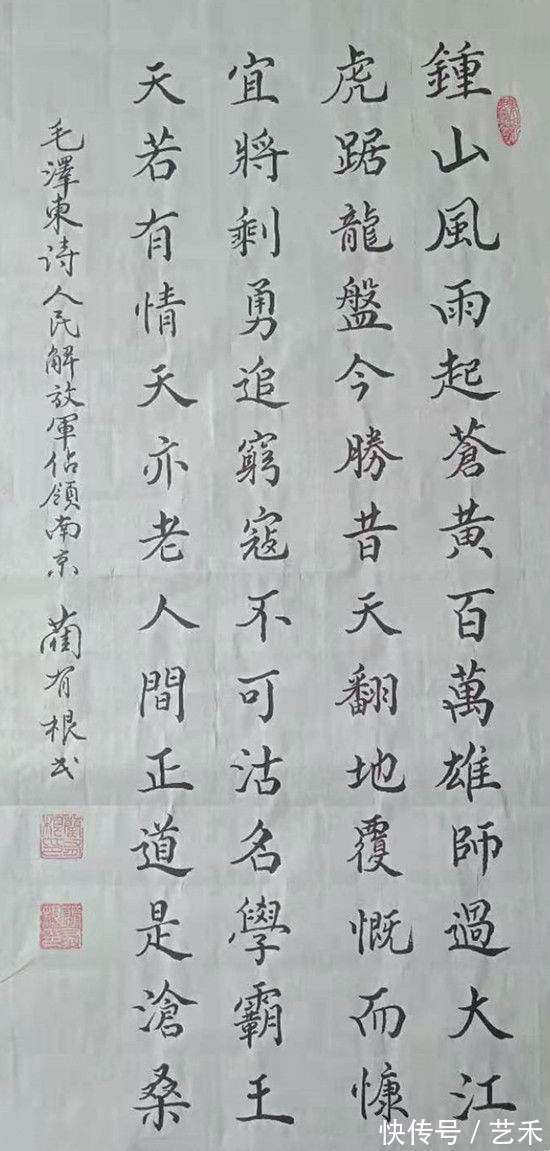 鍾山風雨起蒼黄百萬雄師過大江
虎踞龍盤今勝昔天翻地覆慨而慷
宜將剩勇追窮寇不可沽名學霸王
天若有情天亦老人間正道是滄桑
毛澤東诗人民解放軍佔領南京 藺有根书
快传号 / 艺禾